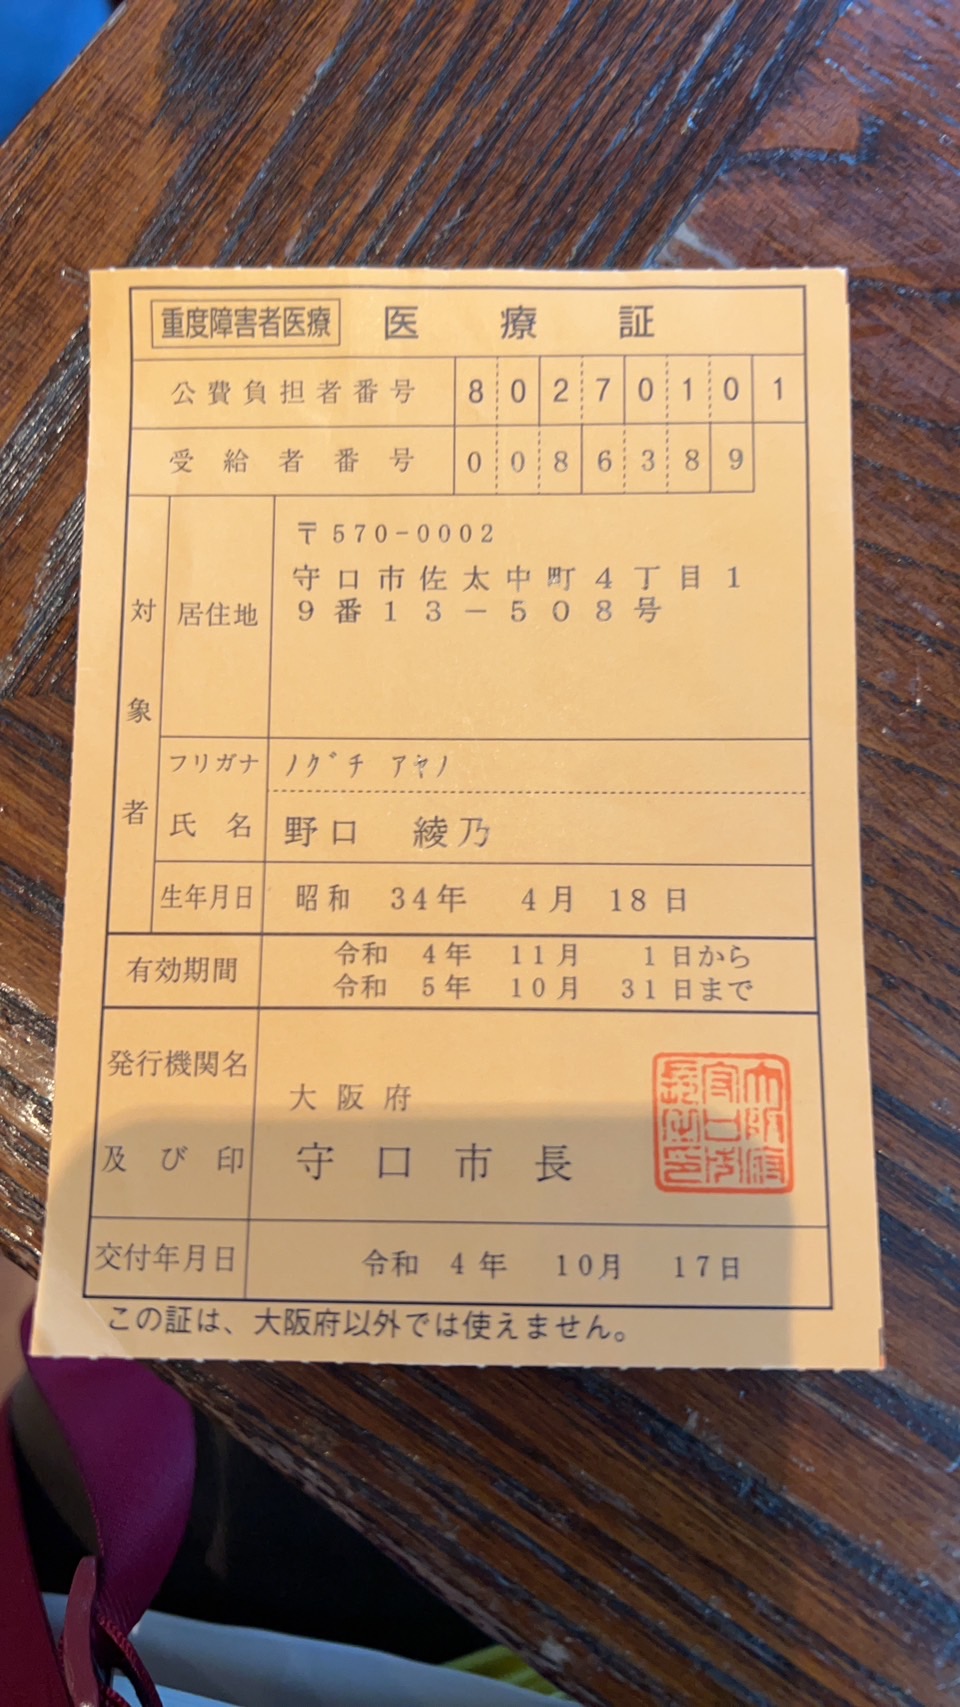 重度障害者医療 医療証
公費負担者番号 80270101
受給者番号 0086389
対象者
居住地 〒570-0002
守口市佐太中町4丁目1
9番13-508号
フリガナ ノグチ アヤノ
氏名 野口 綾乃
生年月日 昭和 34年 4月 18日
有効期間 令和 4年 11月 1日から
令和 5年 10月 31日まで
発行機関名及び印
大阪府
守口市長
大阪府守口市長之印
交付年月日 令和 4年 10月 17日
この証は、大阪府以外では使えません。